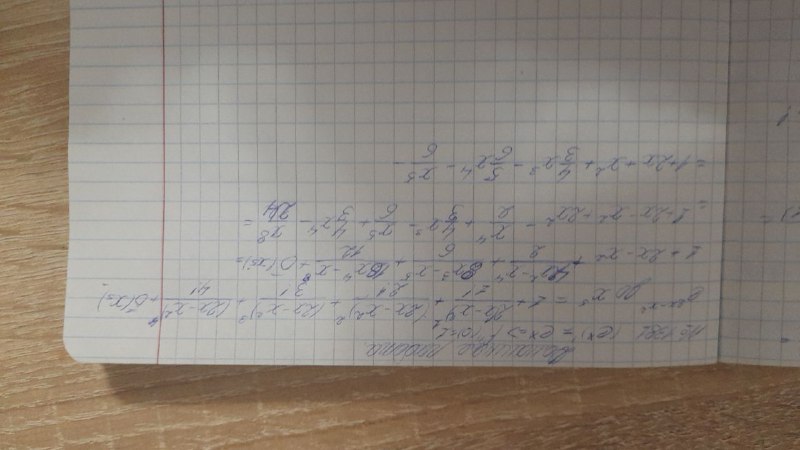 Домашняя работа
№ 1391 (e^x)' = e^x => f'(0)=1
e^{2x-x^2} до x^5 = 1 + \frac{2x-x^2}{1!} + \frac{(2x-x^2)^2}{2!} + \frac{(2x-x^2)^3}{3!} + \frac{(2x-x^2)^4}{4!} + \bar{o}(x^5)
1+2x-x^2 + \frac{4x^2-x^4}{2} + \frac{8x^3-x^5}{6} + \frac{16x^4-x^8}{12} + \bar{o}(x^5) =
= 1+2x-x^2+2x^2 - \frac{x^4}{2} + \frac{4}{3}x^3 - \frac{x^5}{6} + \frac{4}{3}x^4 - \frac{x^8}{24} =
= 1+2x+x^2+\frac{4}{3}x^3 - \frac{5}{6}x^4 - \frac{x^5}{6} -